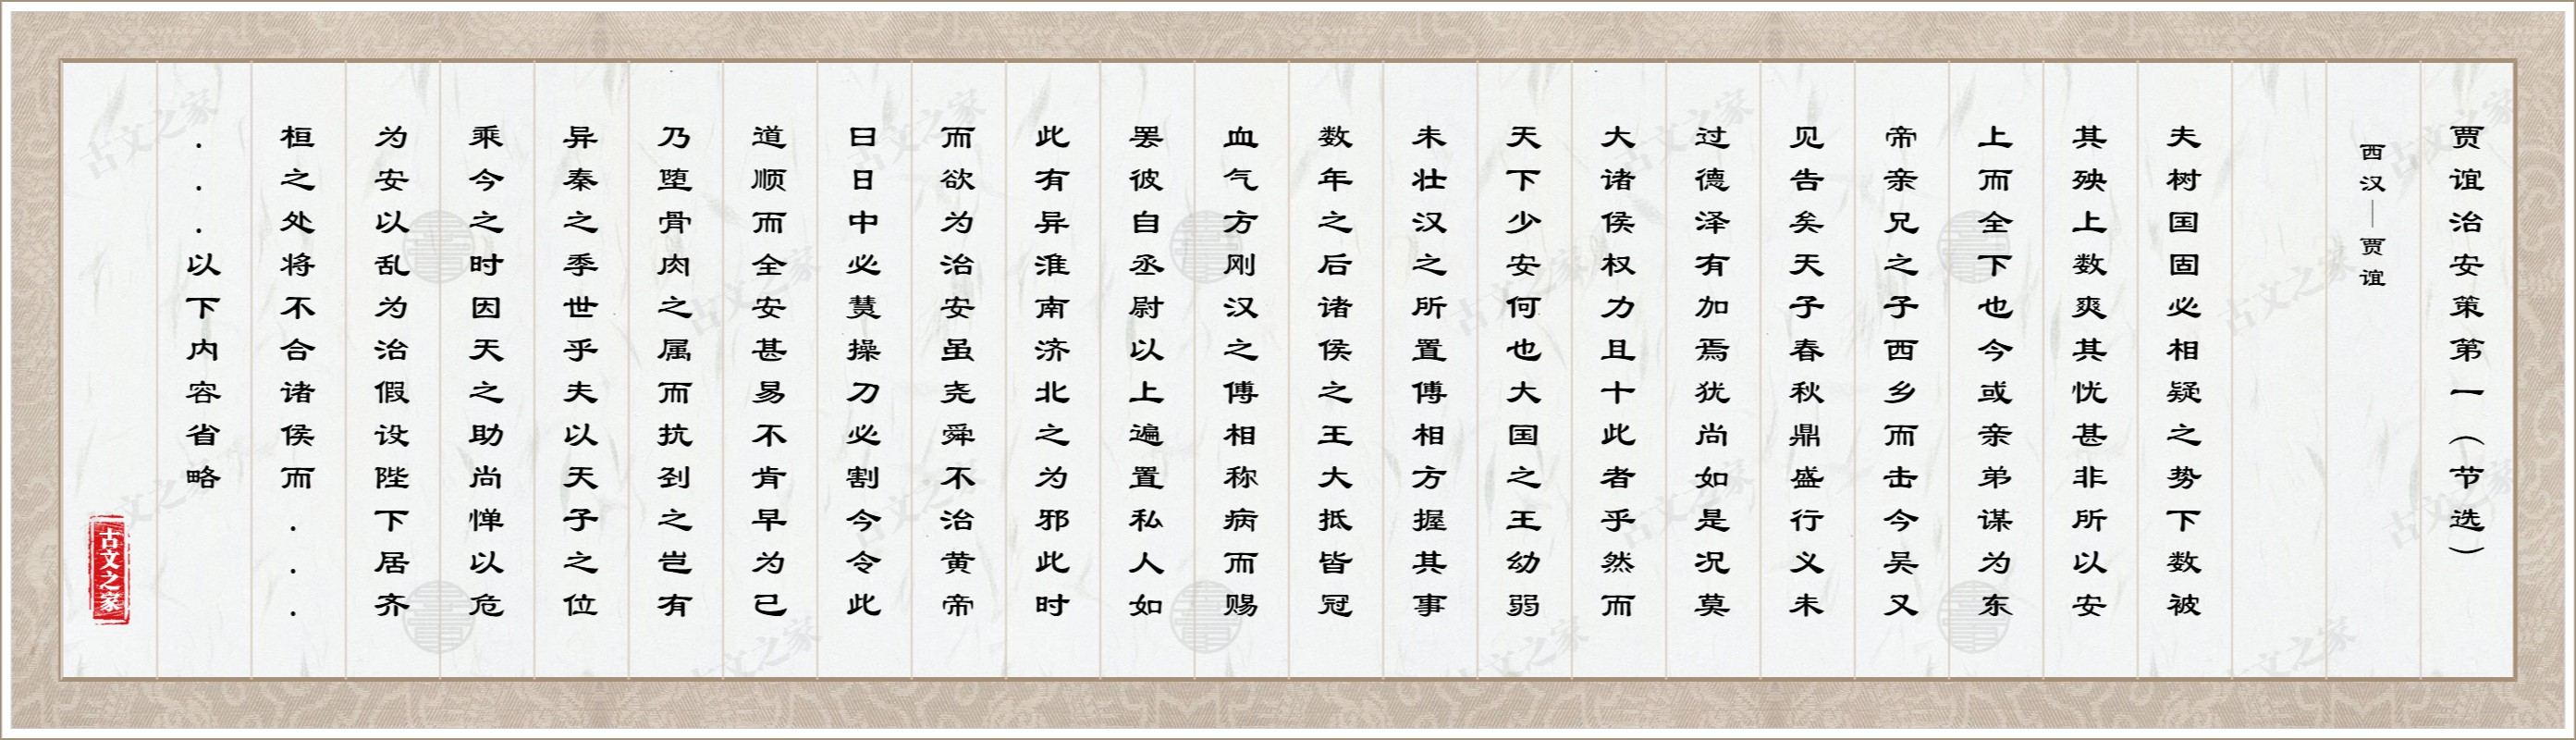 贾谊治安策第一（节选）
西汉—贾谊
夫树国固必相疑之势下数被
其殃上数爽其忧甚非所以安
上而全下也今或亲弟谋为东
帝亲兄之子西乡而击今吴又
见告矣天子春秋鼎盛行义未
过德泽有加焉犹尚如是况莫
大诸侯权力且十此者乎然而
天下少安何也大国之王幼弱
未壮汉之所置傅相方握其事
数年之后诸侯之王大抵皆冠
血气方刚汉之傅相称病而赐
罢彼自丞尉以上遍置私人如
此有异淮南济北之为邪此时
而欲为治安虽尧舜不治黄帝
曰日中必慧操刀必割今令此
道顺而全安甚易不肯早为已
乃堕骨肉之属而抗刭之岂有
异秦之季世乎夫以天子之位
乘今之时因天之助尚惮以危
为安以乱为治假设陛下居齐
桓之处将不合诸侯而...
...以下内容省略
古文之家